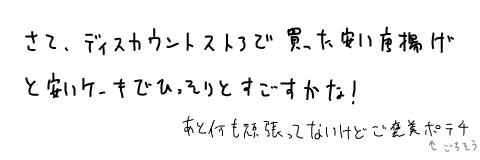 さて、ディスカウントストアで買った安い唐揚げ
と安いケーキでひっそりとすごすかな!
あと何も頑張ってないけどご褒美ポテチ
↑ごちそう